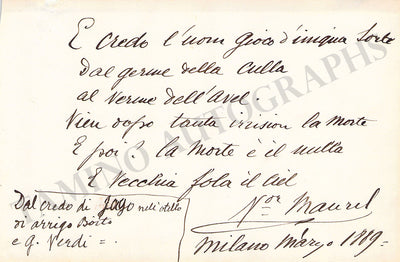 E credo l'uom gioco d'iniqua Sorte
Dal germe della Culla
al Verme dell'Avel.
Vien dopo tanta irrision la Morte
E poi? la Morte è il nulla
È Vecchia fola il Ciel
Dal credo di Jago nell'otello
di arrigo Boito
e G. Verdi =.
V^or Maurel
Milano Marzo 1889=
TAMINO AUTOGRAPHS